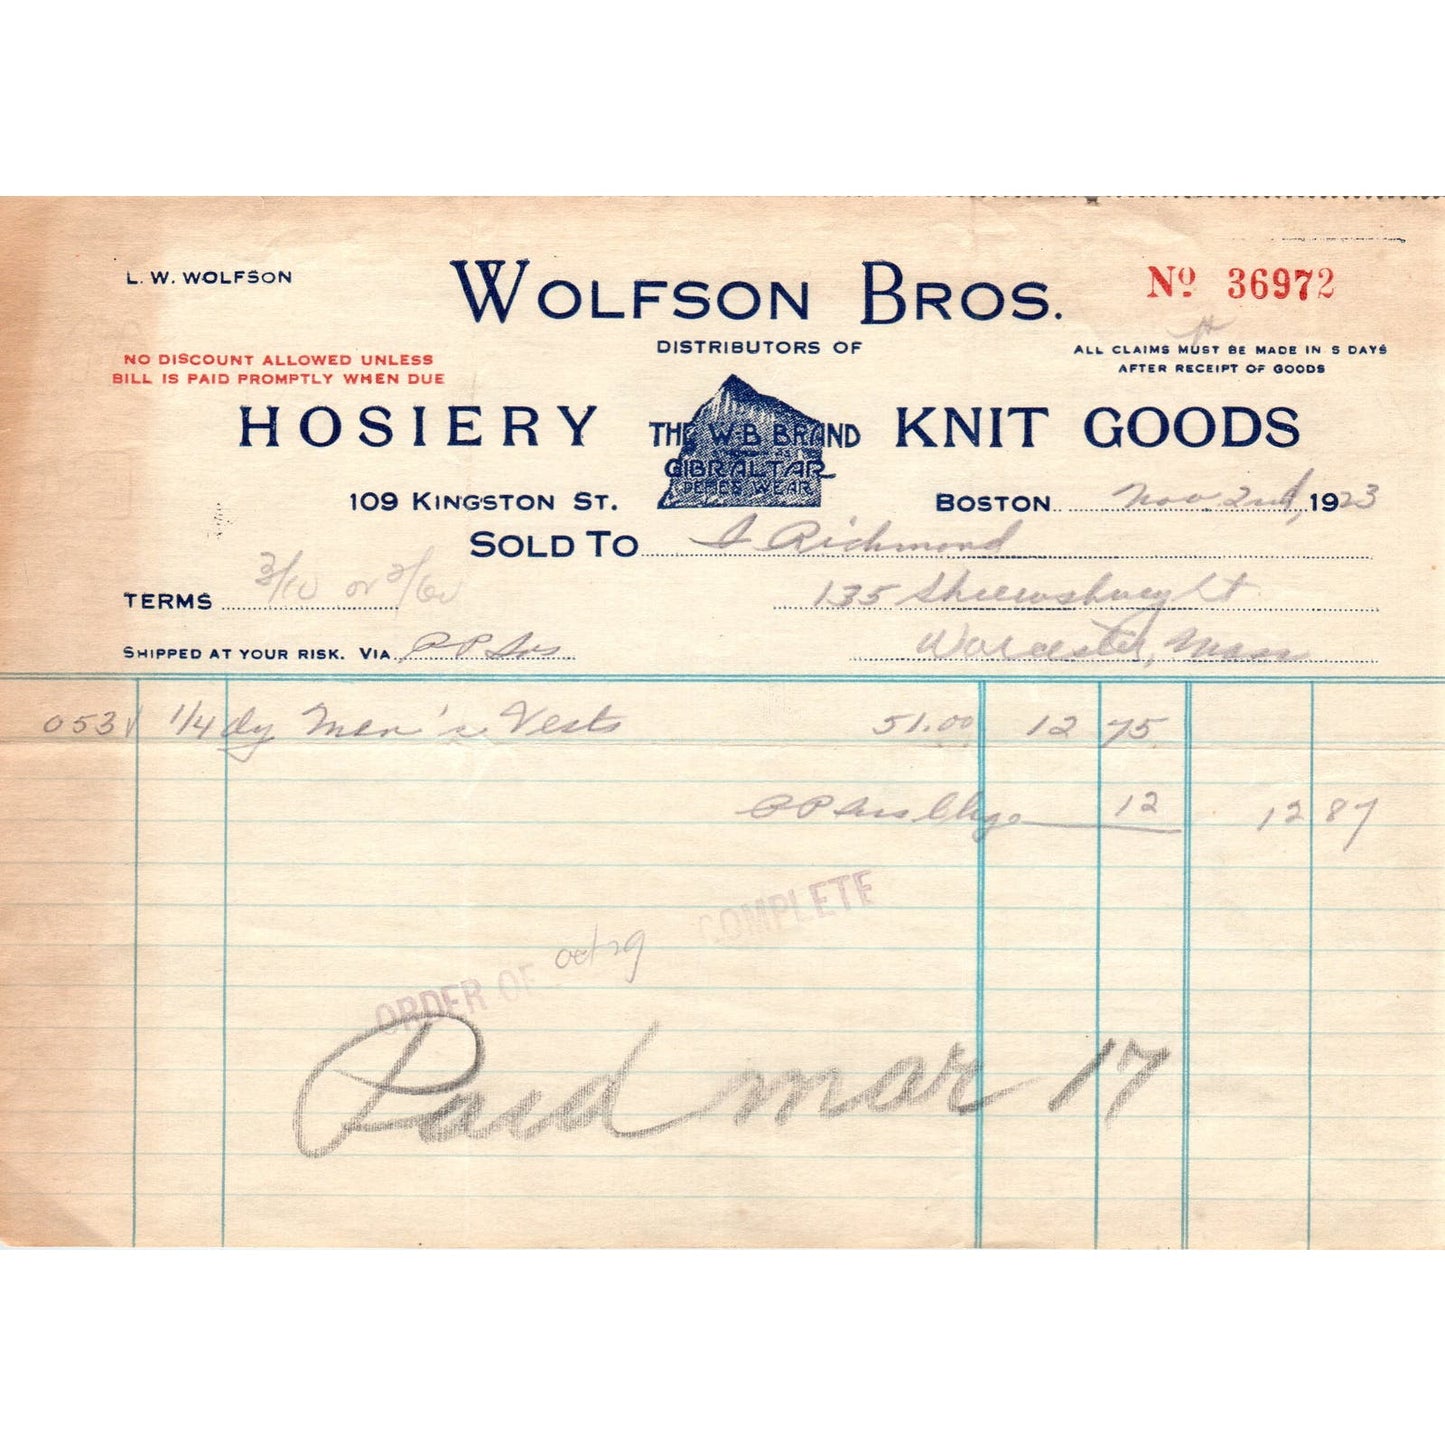 L. W. WOLFSON
WOLFSON BROS.
Nº 36972
DISTRIBUTORS OF
NO DISCOUNT ALLOWED UNLESS
BILL IS PAID PROMPTLY WHEN DUE
ALL CLAIMS MUST BE MADE IN 5 DAYS
AFTER RECEIPT OF GOODS
HOSIERY THE W-B BRAND KNIT GOODS
GIBRALTAR
WEAR
109 KINGSTON ST.
BOSTON Nov 2nd, 1923
SOLD TO Richmond
TERMS 3/10 or 2/60
135 Shrewsbury St
SHIPPED AT YOUR RISK. VIA PP Ins
Worcester, Mass
053 1/4 dy Men's Vests 51.00 12 75
PP Ins Chge 12 12 87
COMPLETE
ORDER OF Oct 29
Paid Mar 17